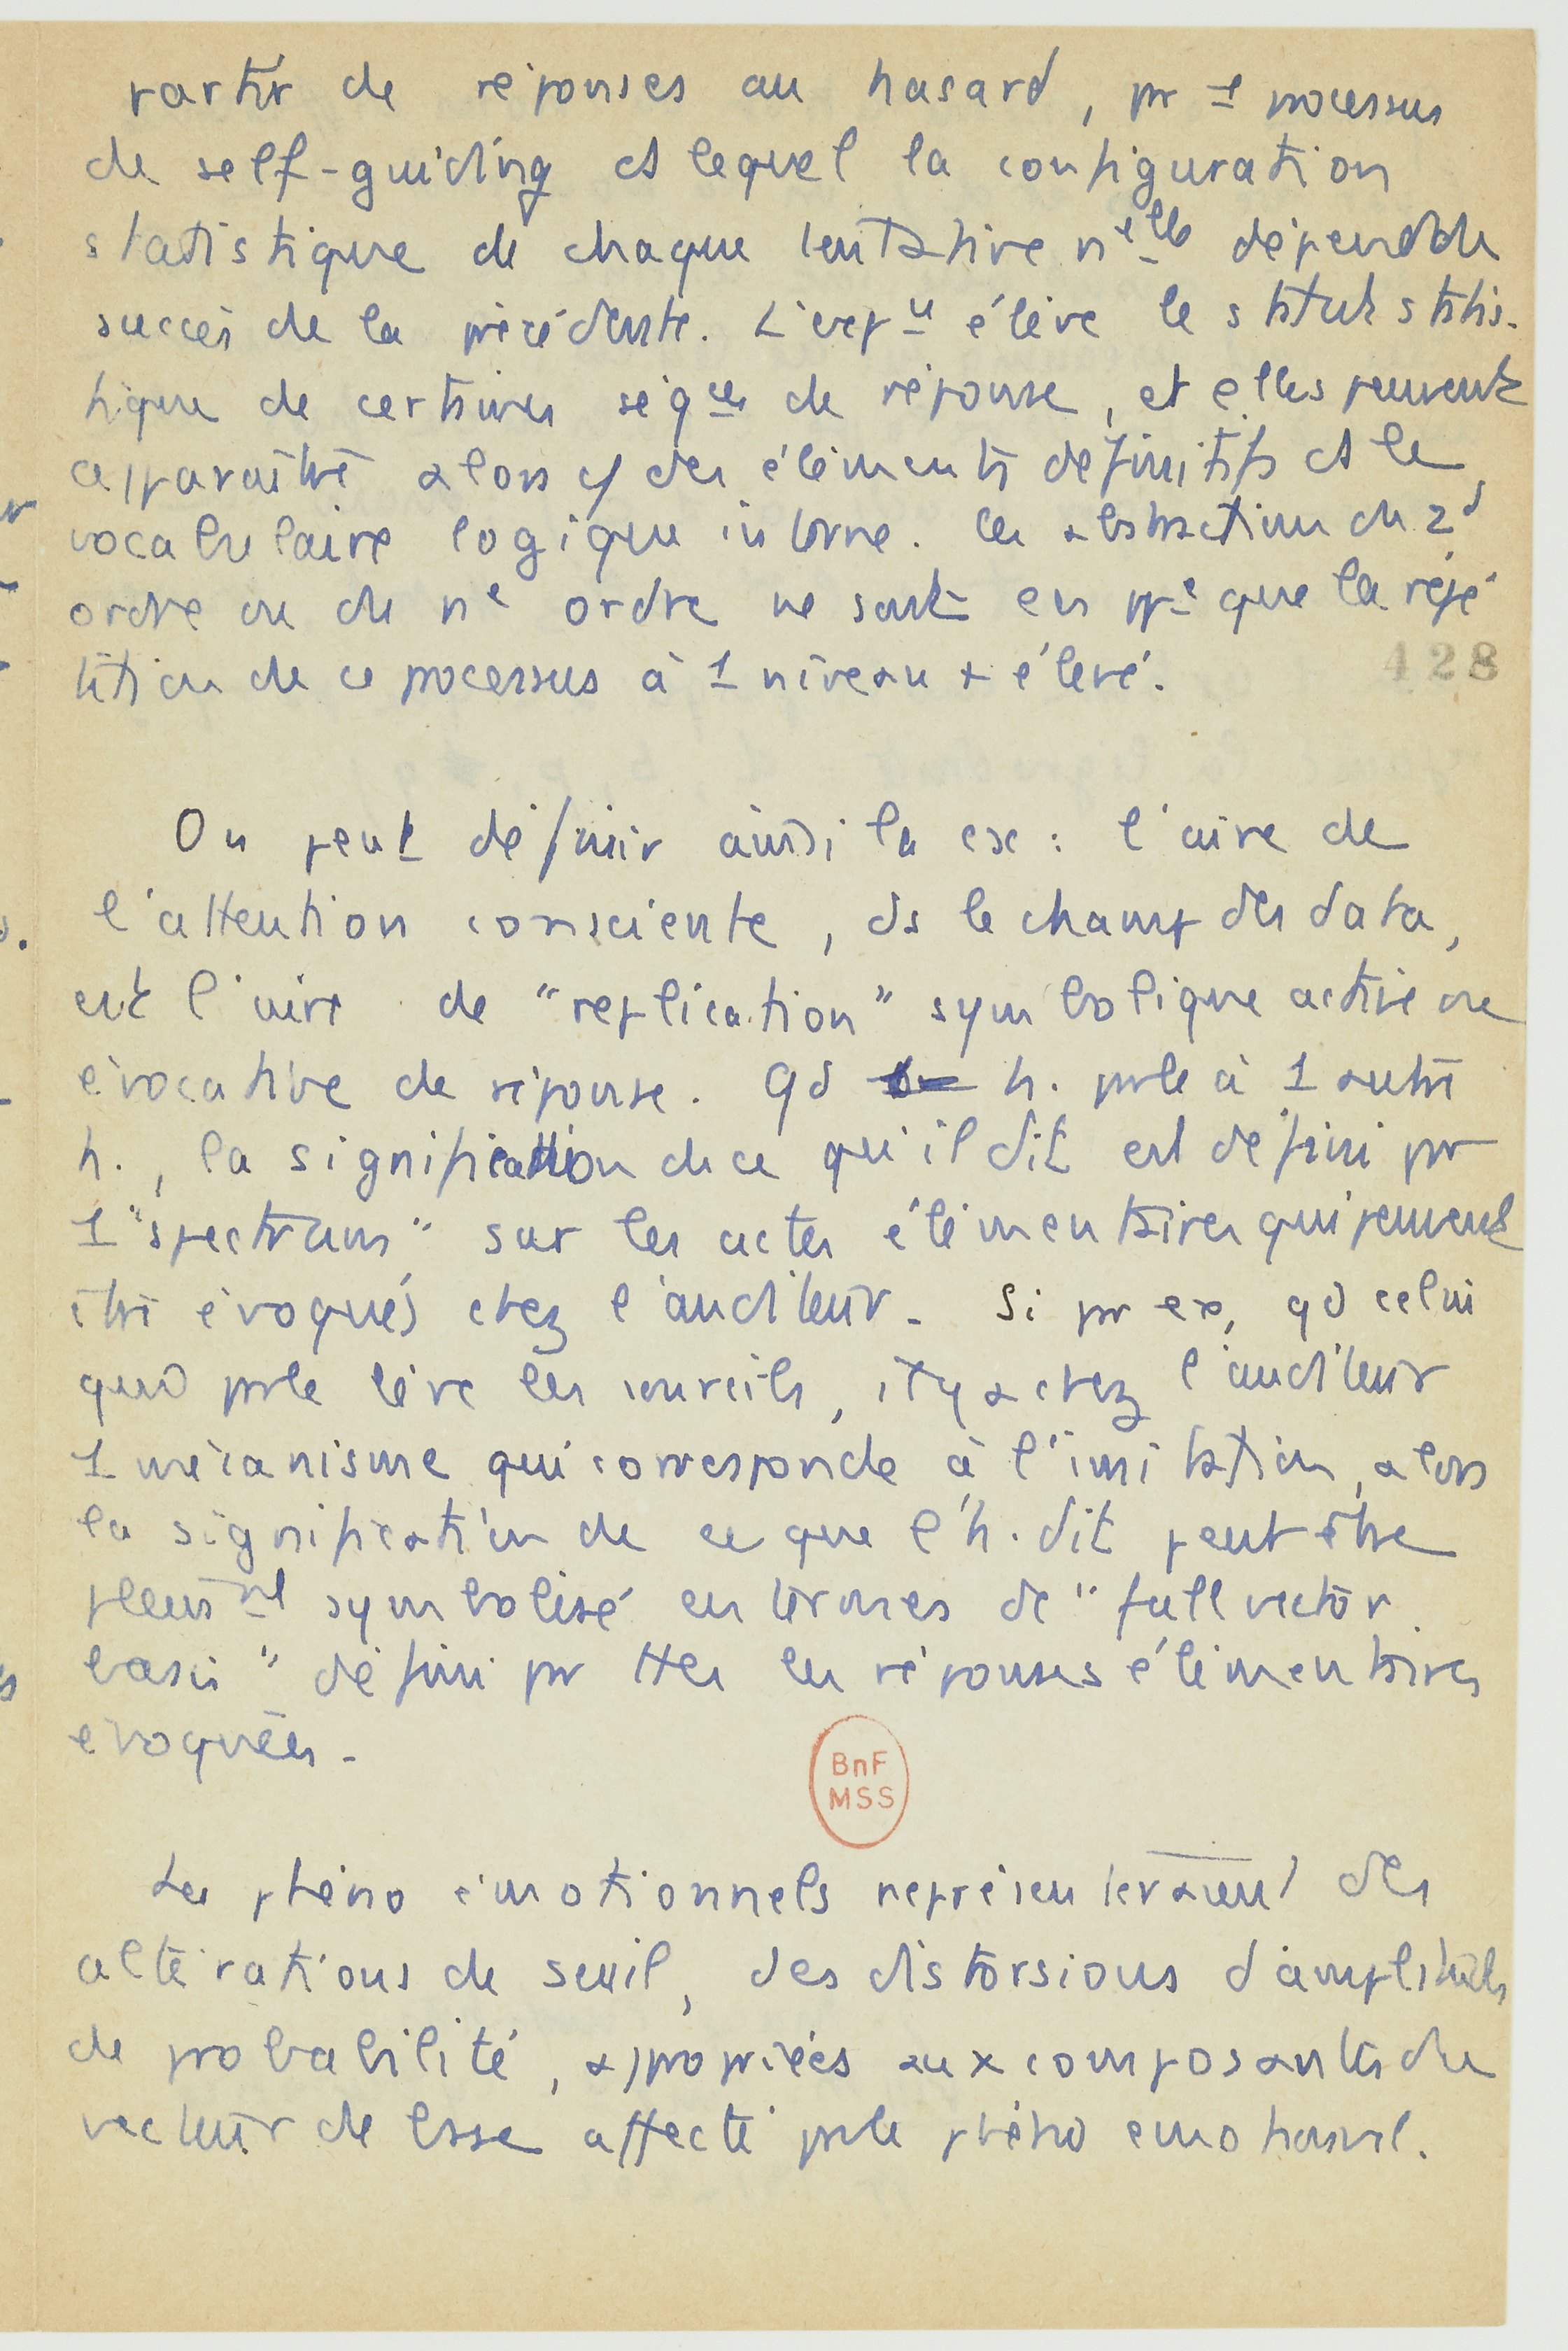 partir de réponses au hasard, pr 1 processus
de self-guiding ds lequel la configuration
statistique de chaque tentative nelle dépend du
succès de la précédente. L'expce élève le statut statis-
tique de certaines séqces de réponse, et elles peuvent
apparaître alors c/ des éléments définitifs ds le
vocabulaire logique interne. Les abstractions du 2d
ordre ou du ne ordre ne sont en ppe que la répé
tition de ce processus à 1 niveau + élevé.
428
On peut définir ainsi la csc : l'aire de
l'attention consciente, ds le champ des data,
est l'aire de "replication" symbolique active ou
évocative de réponse. Qd h. parle à 1 autre
h., la signification de ce qu'il dit est défini pr
1 "spectrum" sur les actes élémentaires qui peuvent
être évoqués chez l'auditeur. Si pr ex, qd celui
qui parle lève les sourcils, il y a chez l'auditeur
1 mécanisme qui corresponde à l'imitation, alors
la signification de ce que l'h. dit peut être
pleinemt symbolisé en termes de "full vector
basis" défini pr ttes les réponses élémentaires
évoquées.
BnF
MSS
Les phéno émotionnels représenteraient des
altérations de seuil, des distorsions d'amplitude
de probabilité, appropriées aux composantes du
vecteur de base affecté par le phéno émotionnel.